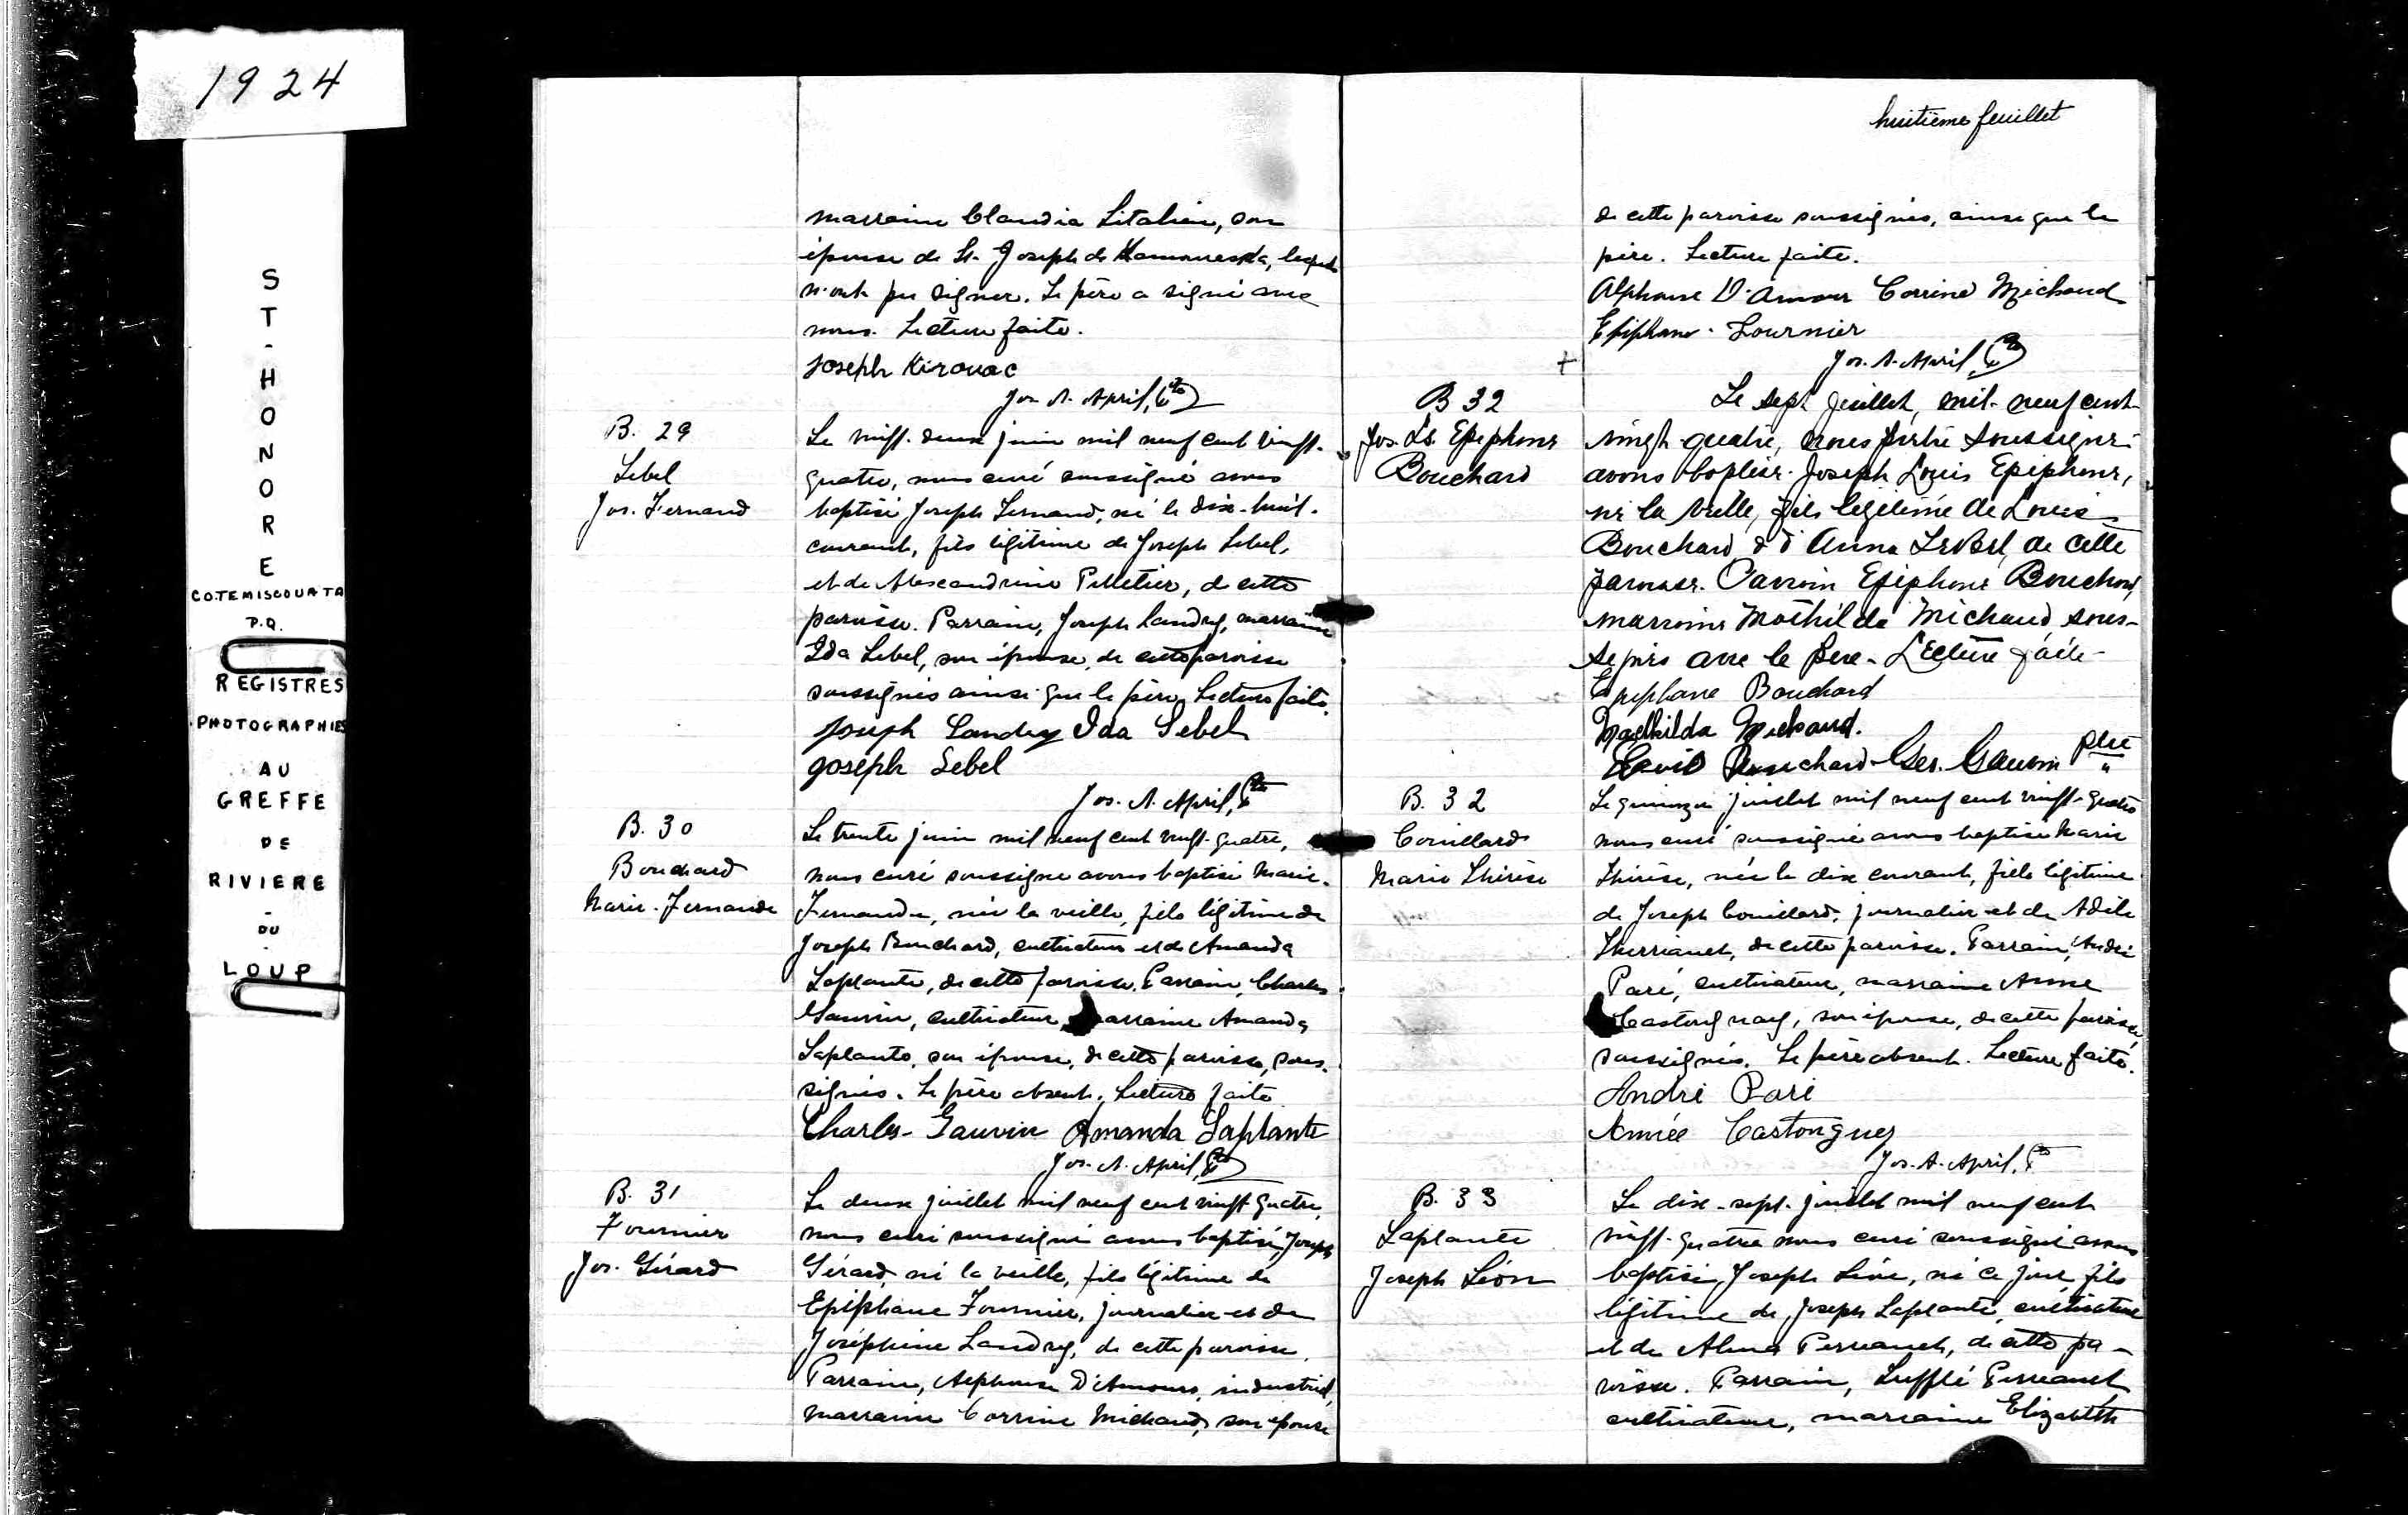 1924
ST-HONORE
CO.TEMISCOUATA
P.Q.
REGISTRES
PHOTOGRAPHIES
AU
GREFFE
DE
RIVIERE
-
DU
-
LOUP
marraine Claudia Litalien, son
épouse de St. Joseph de Kamouraska, lesquels
n'ont pu signer. Le père a signé avec
nous. Lecture faite.
Joseph Kirouac
Jos. A. April, Ptre
B. 29
Lebel
Jos. Fernand
Le vingt-deux juin mil neuf cent vingt-
quatre, nous curé soussigné avons
baptisé Joseph Fernand, né le dix-huit
courant, fils légitime de Joseph Lebel,
et de Alexandrine Pelletier, de cette
paroisse. Parrain, Joseph Landry, marraine
Ida Lebel, son épouse, de cette paroisse
soussignés ainsi que le père. Lecture faite.
Joseph Landry Ida Lebel
Joseph Lebel
Jos. A. April, Ptre
B. 30
Bouchard
Marie-Fernande
Le trente juin mil neuf cent vingt-quatre,
nous curé soussigné avons baptisé Marie-
Fernande, née la veille, fille légitime de
Joseph Bouchard, cultivateur et de Amanda
Laplante, de cette paroisse. Parrain, Charles
Gauvin, cultivateur, marraine Amanda
Laplante, son épouse, de cette paroisse, sous-
signés. Le père absent. Lecture faite
Charles Gauvin Amanda Laplante
Jos. A. April, Ptre
B. 31
Fournier
Jos. Gérard
Le deux juillet mil neuf cent vingt quatre,
nous curé soussigné avons baptisé, Joseph
Gérard, né la veille, fils légitime de
Epiphane Fournier, journalier et de
Joséphine Landry, de cette paroisse.
Parrain, Alphonse D'Amours, industriel,
marraine Corrine Michaud, son épouse
huitième feuillet
de cette paroisse soussignés, ainsi que le
père. Lecture faite.
Alphonse D'Amour Corrine Michaud
Epiphane Fournier
Jos. A. April, Ptre
+
B 32
Jos. Ls. Epiphane
Bouchard
Le sept juillet, mil-neuf cent-
vingt quatre, nous prêtre soussigné
avons baptisé Joseph Louis Epiphane,
né la veille, fils légitime de Louis
Bouchard & d'Anna LeBel, de cette
paroisse. Parrain Epiphane Bouchard,
marraine Mathilda Michaud sous-
signés avec le père. Lecture faite-
Epiphane Bouchard
Mathilda Michaud.
Louis Bouchard Geo. Gauvin ptre
B. 32
Couillard
Marie Thérèse
Le quinze juillet mil neuf cent vingt-quatre
nous curé soussigné avons baptisé Marie
Thérèse, née le dix courant, fille légitime
de Joseph Couillard, journalier et de Adèle
Therriault, de cette paroisse. Parrain, André
Paré, cultivateur, marraine Anne
Castonguay, son épouse, de cette paroisse,
soussignés. Le père absent. Lecture faite.
André Paré
Année Castonguey
Jos. A. April, Ptre
B. 33
Laplante
Joseph Léon
Le dix-sept juillet mil neuf cent
vingt-quatre nous curé soussigné avons
baptisé, Joseph Léon, né ce jour, fils
légitime de Joseph Laplante, cultivateur
et de Alma Perreault, de cette pa-
roisse. Parrain, Perreault
cultivateur, marraine Elizabeth